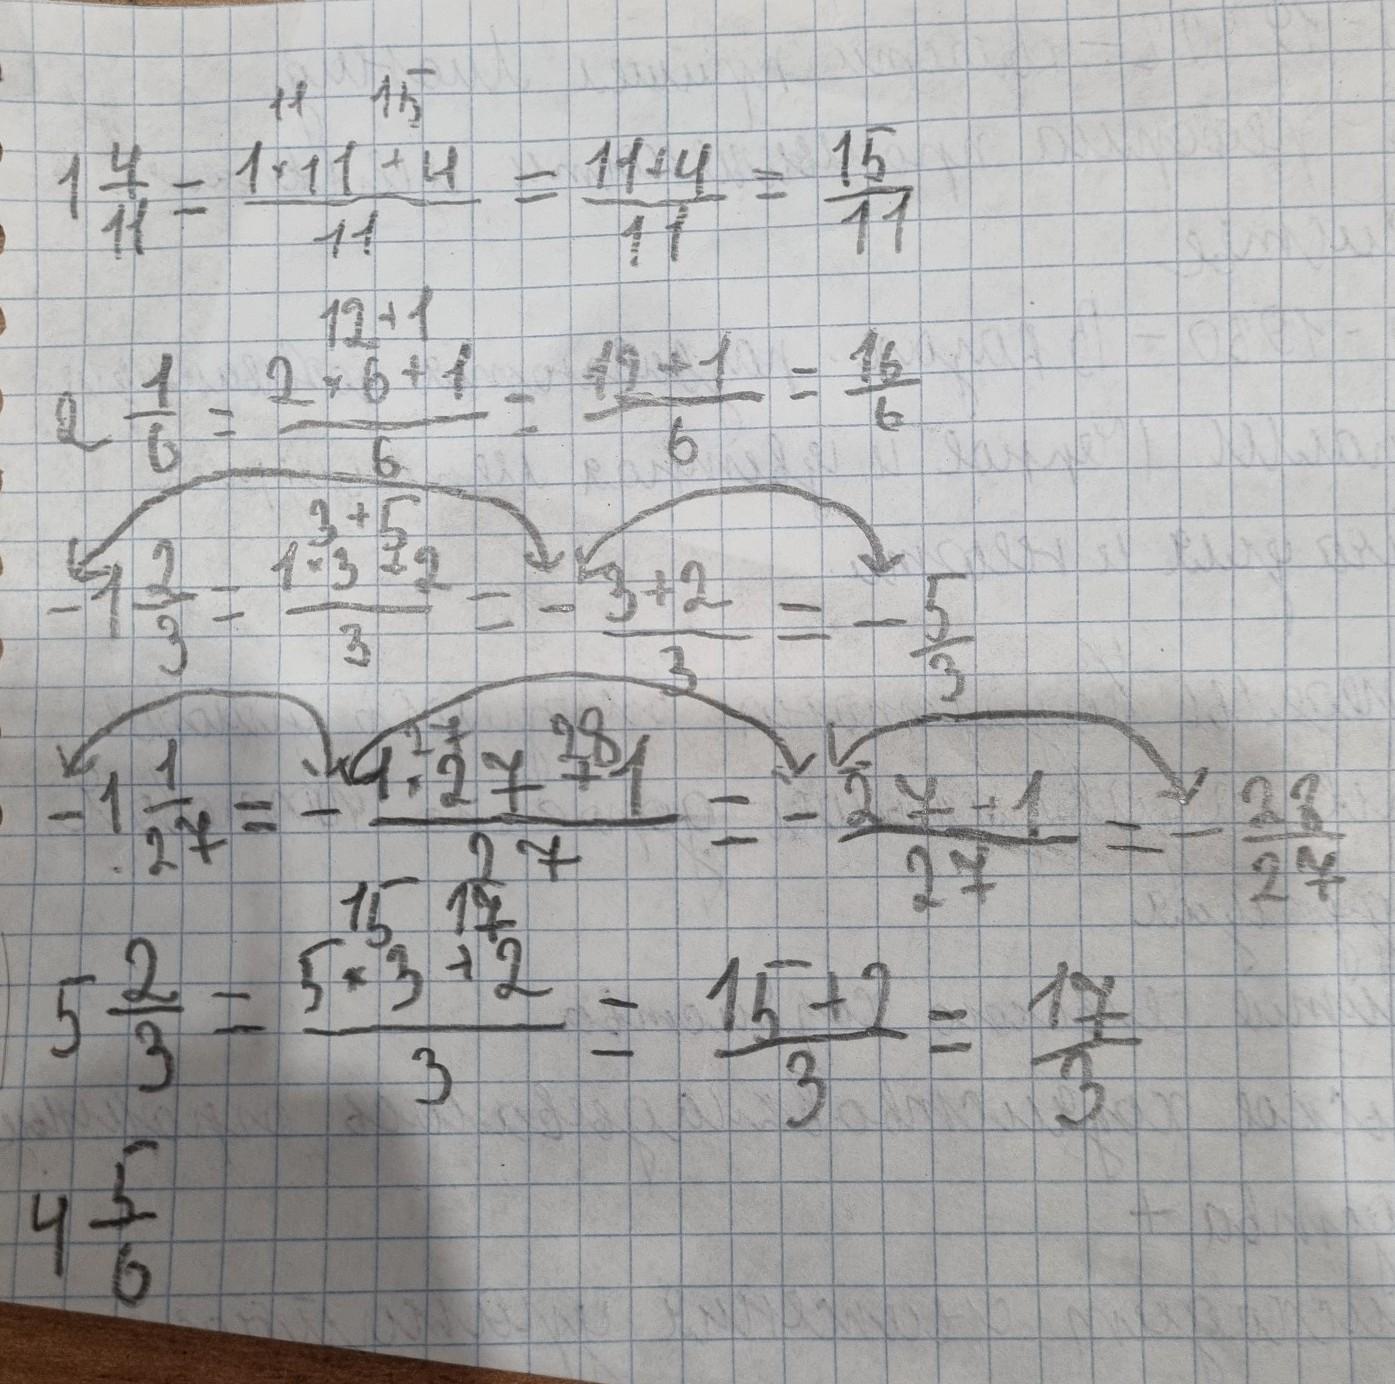 11 15
1 4/11 = 1·11+4/11 = 11+4/11 = 15/11
12+1
2 1/6 = 2·6+1/6 = 12+1/6 = 16/6
3+5
-1 2/3 = 1·3+2/3 = - 3+2/3 = - 5/3
27 28
-1 1/27 = - 1·27+1/27 = - 27+1/27 = - /27
15 17
5 2/3 = 5·3+2/3 = 15+2/3 = 17/3
4 5/6